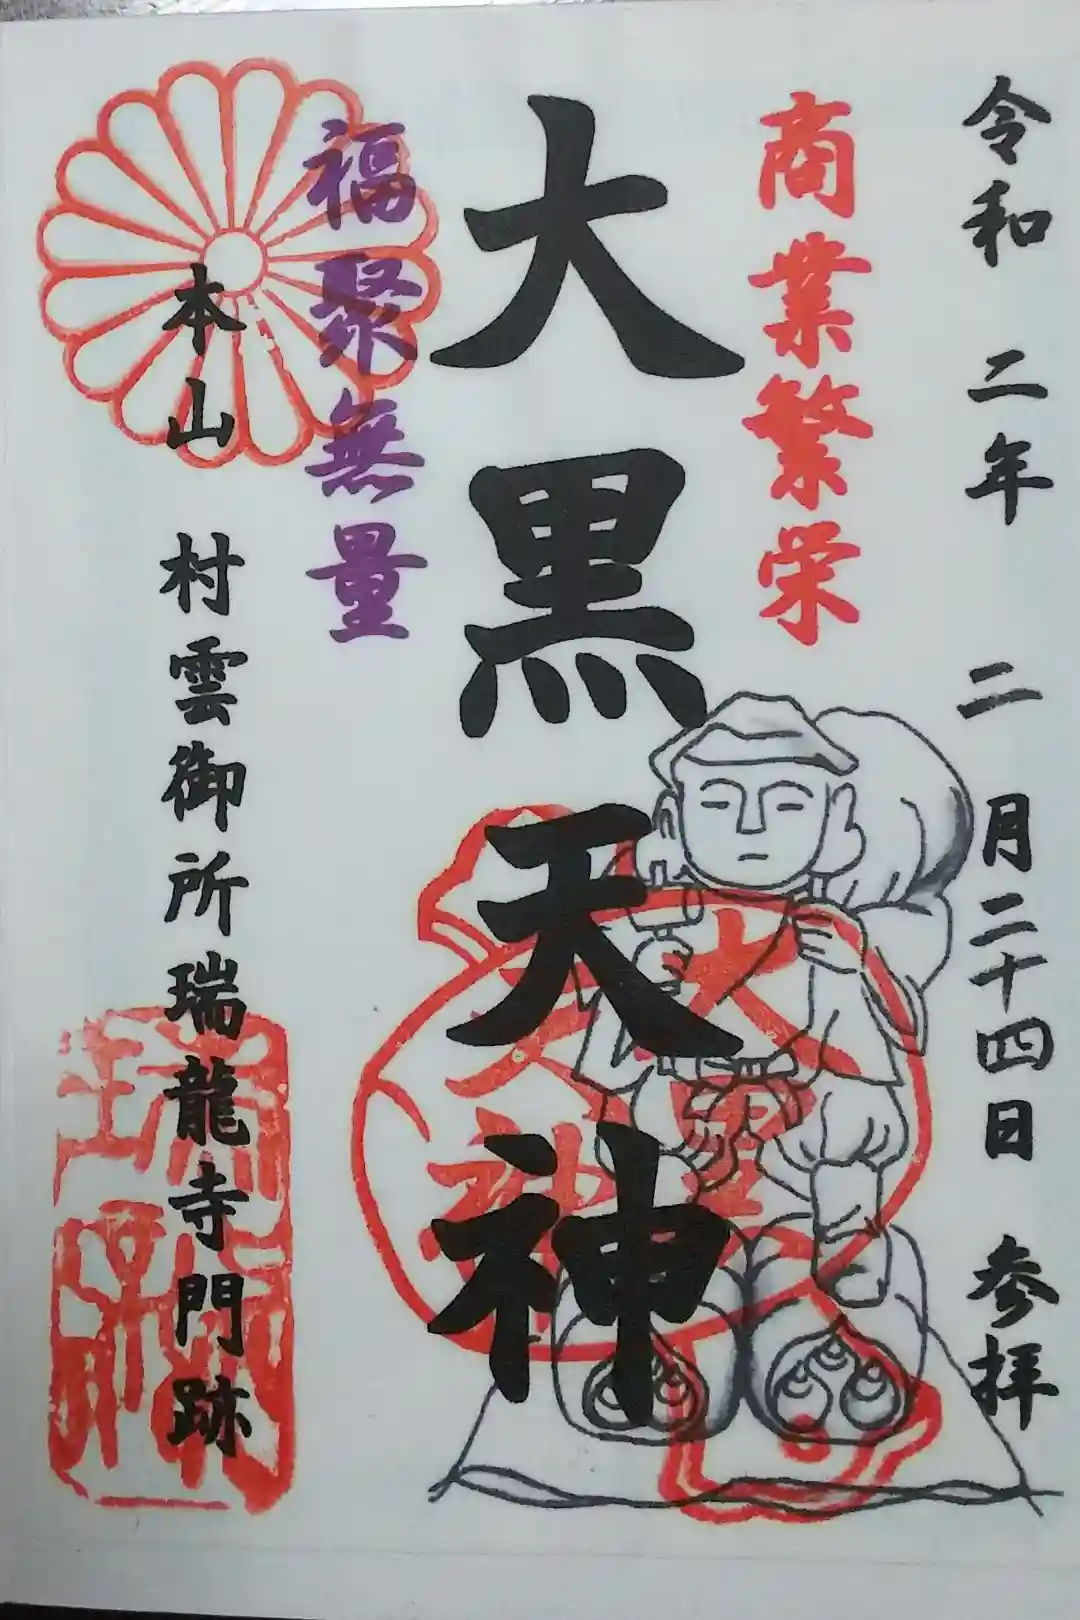 令和二年二月二十四日 参拝
商業繁栄
大黒天神
福聚無量
本山 村雲御所瑞龍寺門跡
大黒
天神